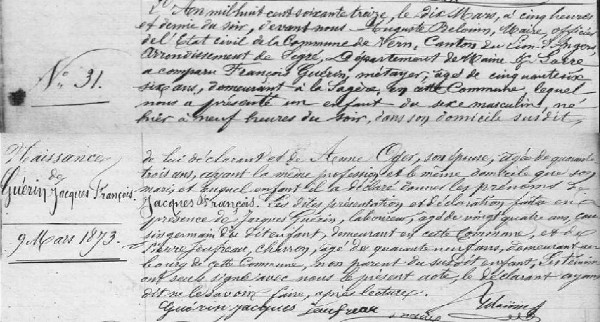 L'An mil huit cent soixante treize, le dix Mars, à cinq heures
et demie du soir, devant nous Auguste Belouin, Maire, officier
de l'État civil de la Commune de Vern, Canton du Lion d'Angers,
Arrondissement de Segré, Département de Maine & Loire
a comparu François Guérin, métayer, âgé de cinquante
six ans, demeurant à la, en cette Commune, lequel
nous a présenté un enfant du sexe masculin, né
hier à neuf heures du soir, dans son domicile susdit,
N° 31.
Naissance
de
Guérin Jacques François.
9 Mars 1873.
de lui déclarant et de Anne, son épouse, âgée de quarante
trois ans, ayant la même profession et le même domicile que son
mari, et auquel enfant il a déclaré donner les prénoms de
Jacques François. Les dites présentation et déclaration faites en
présence de Jacques Guérin, laboureur, âgé de vingt quatre ans, cou
sin germain du dit enfant, demeurant en cette Commune, et de
charron, âgé de quarante neuf ans, demeurant au
bourg de cette Commune, non parent du susdit enfant, les témoins
ont seuls signé avec nous le présent acte, le déclarant ayant
dit ne le savoir faire, après lecture.
Guérin Jacques